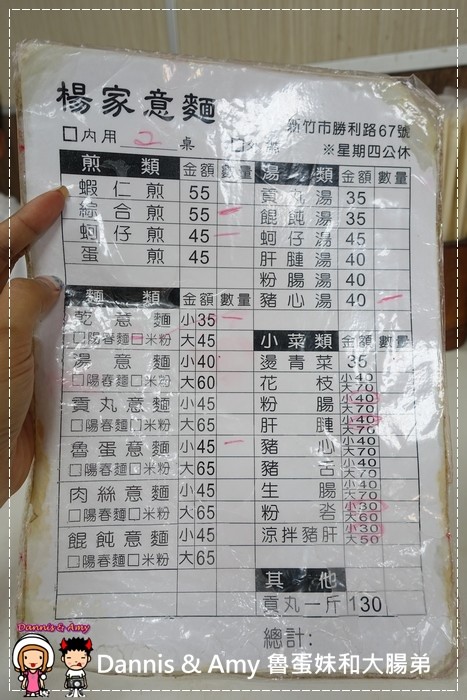 楊家意麵
新竹市勝利路67號
□內用 2 桌
※星期四公休
煎類 金額 數量
蝦仁煎 55
綜合煎 55
蚵仔煎 45
蛋煎 45
湯類 金額 數量
貢丸湯 35
餛飩湯 35
蚵仔湯 45
肝腫湯 40
粉腸湯 40
豬心湯 40
麵類 金額 數量
乾意麵 小35
□陽春麵□米粉 大45
湯意麵 小40
□陽春麵□米粉 大60
貢丸意麵 小45
□陽春麵□米粉 大65
魯蛋意麵 小45
□陽春麵□米粉 大65
肉絲意麵 小45
□陽春麵□米粉 大65
餛飩意麵 小45
□陽春麵□米粉 大65
小菜類 金額 數量
燙青菜 35
花枝 小40 大70
粉腸 小40 大70
肝腫 小40 大70
豬心 小40 大70
豬舌 小40 大70
生腸 小40 大70
粉沯 小30 大60
涼拌豬肝 小30 大50
其他
貢丸一斤 130
總計:
Dannis & Amy
Dannis & Amy 魯蛋妹和大腸弟